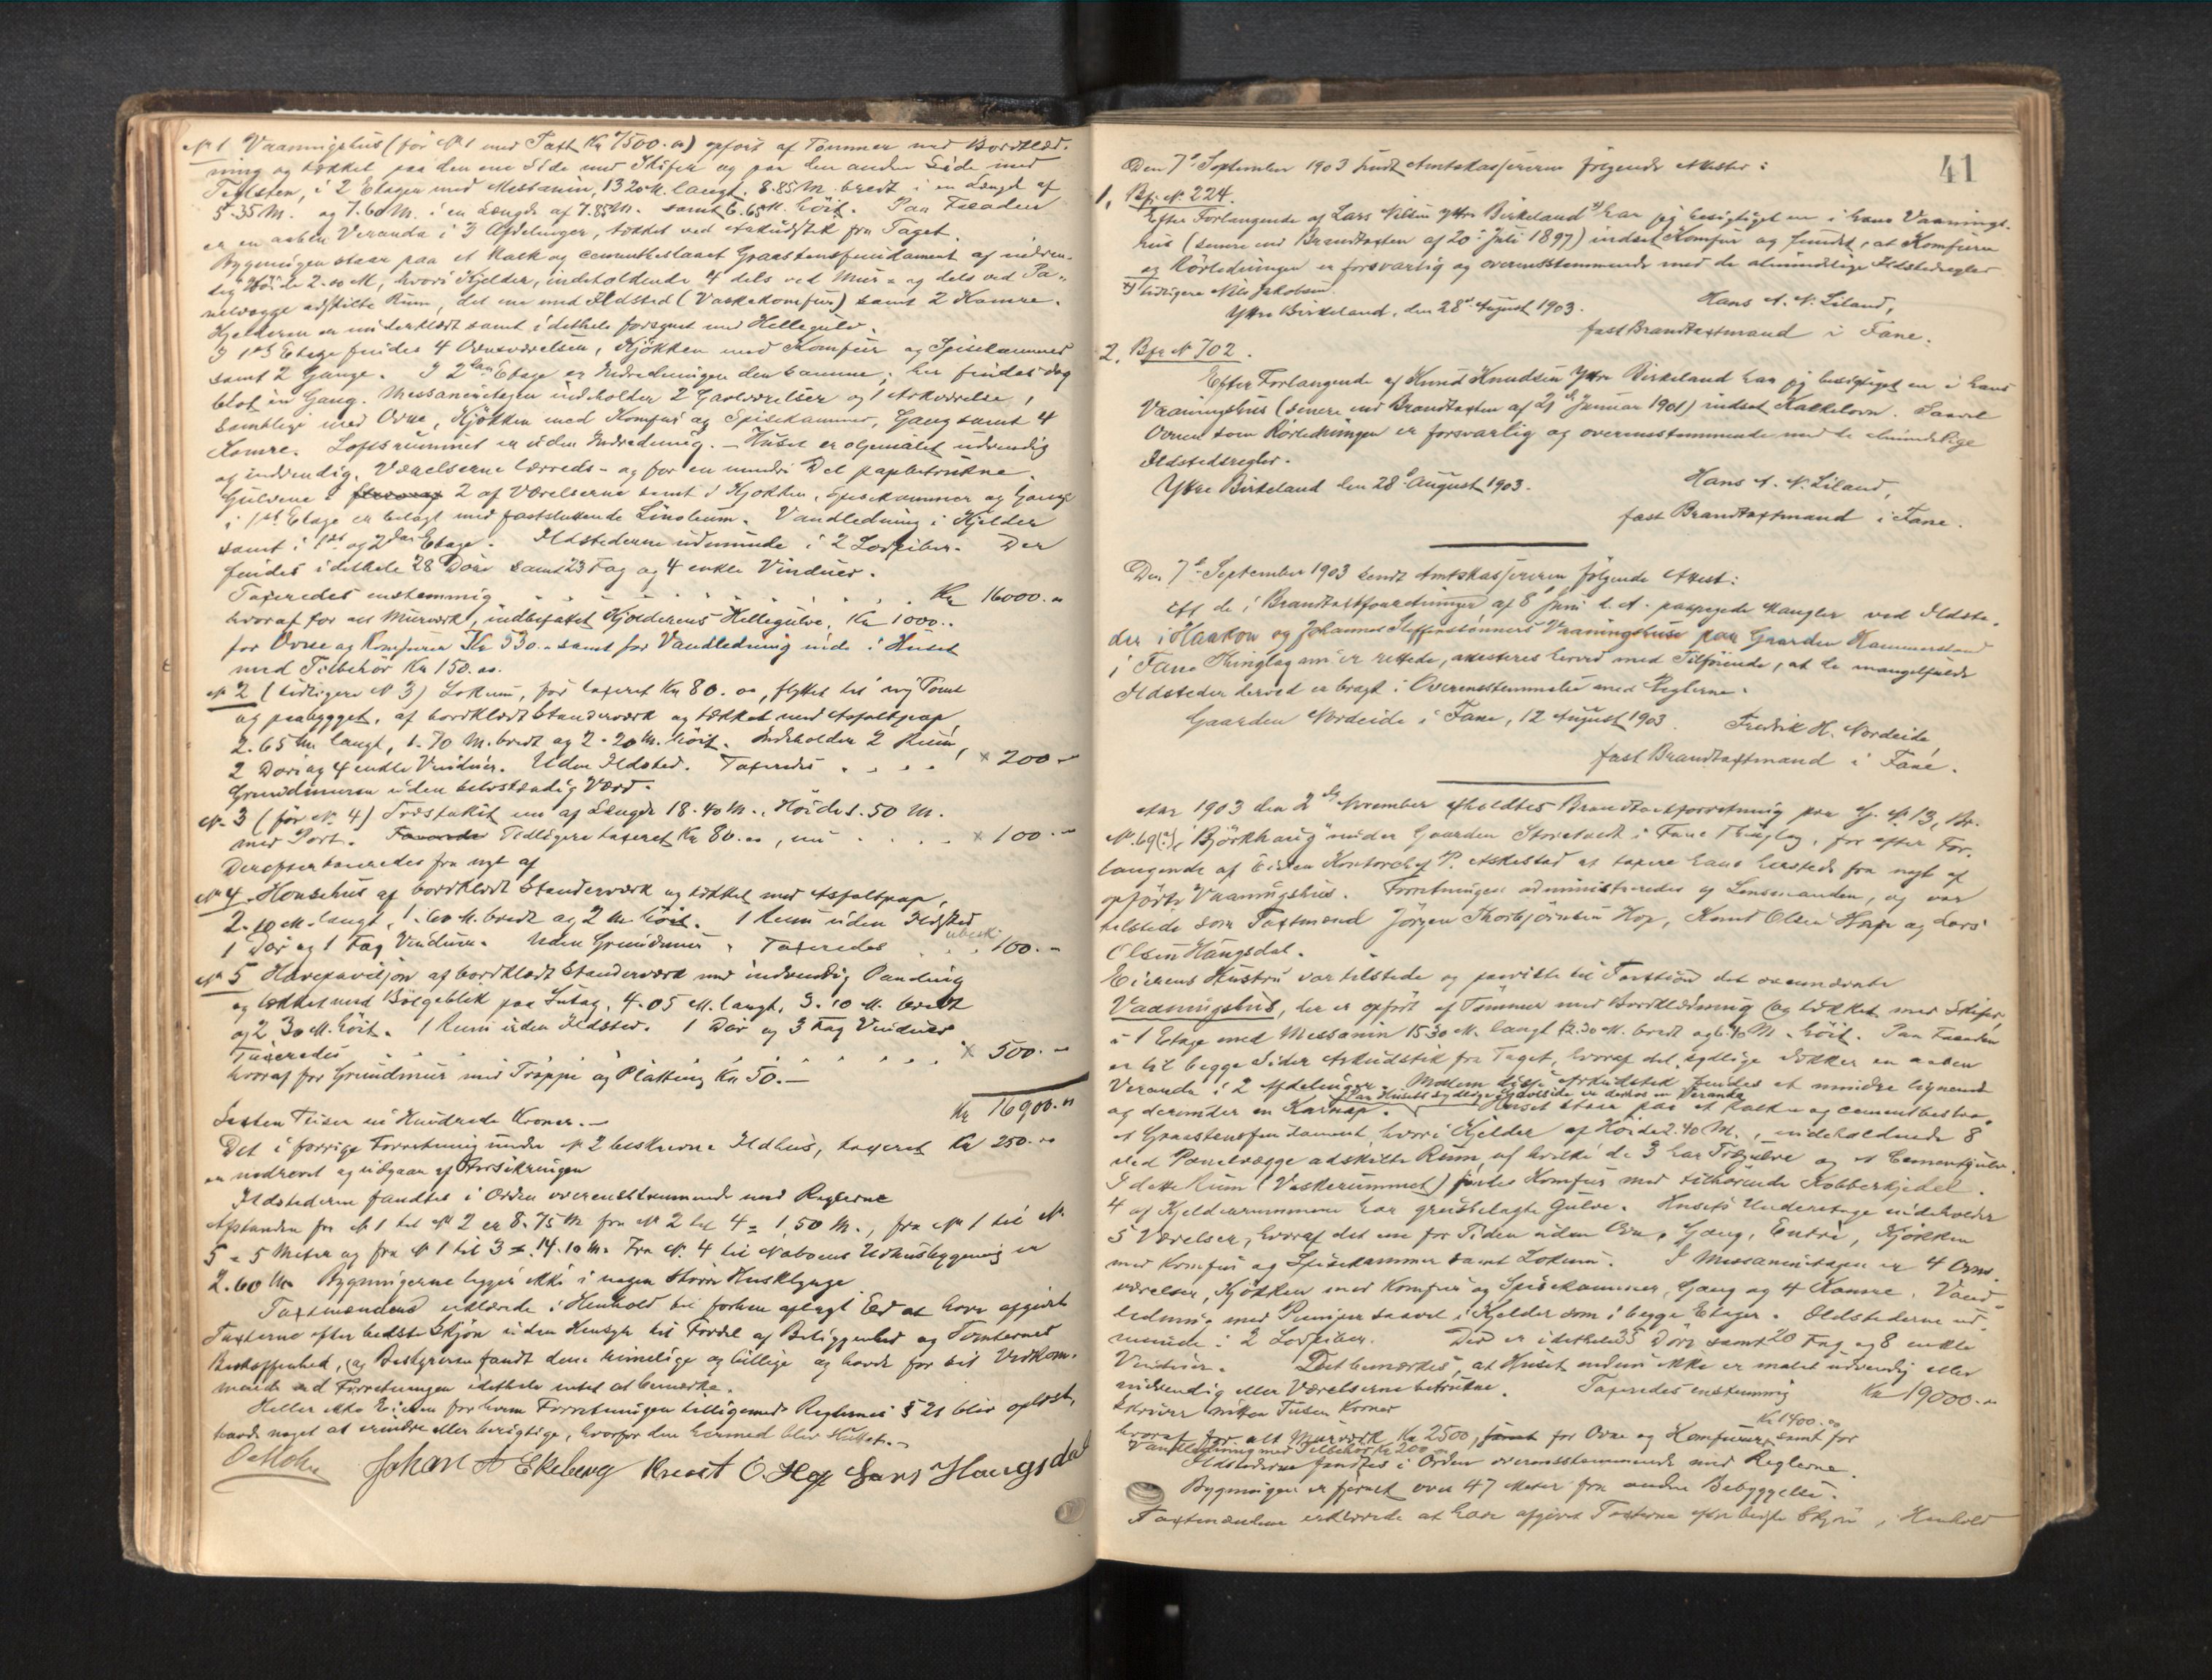 No 1 Vaaningshus (før No 1 med Taxt Kr 7500.00) opført af Tømmer med Bordklæd-
ning og tækket paa den ene Side med Skifer og paa den anden Side med
Teglsten, i 2 Etager med Messanin, 13.20 M. langt, 8.85 M. bredt i en Længde af
5.35 M. og 7.60 M. i en Længde af 7.85 M. samt 6.65 M. høit. Paa Facaden
er en aaben Veranda i 3 Afdelinger, tækket ved Arkudstik fra Taget.
Bygningen staar paa et Kalk og cementbeslaaet Graastensfundament af indven-
dig Høide 2.00 M, hvori Kjelder, indeholdende 4 dels ved Mur- og dels ved Pa-
nelvægge adskilte Rum, det ene med Ildsted (Vaskekomfur) samt 2 Kamre.
Kjelderen er underklædt samt idethele forsynet med Hellegulv.
I 1ste Etage findes 4 Ovnsværelser, Kjøkken med Komfur og Spisekammer
samt 2 Gange. I 2den Etage er Indredningen den samme; her findes dog
blot en Gang. Messaninetagen indeholder 2 Gavlværelser og 1 Arkværelse,
samtlige med Ovne, Kjøkken med Komfur og Spisekammer, Gang samt 4
Kamre. Loftsrummet er uden Indredning. - Huset er oljemalet udvendig
og indvendig. Værelserne lærreds- og for en mindre Del papbetrukne.
Gulvene i 2 af Værelserne samt i Kjøkken, Spisekammer og Gange
i 1ste Etage er belagt med fastsluttende Linoleum. Vandledning i Kjelder
samt i 1ste og 2den Etage. Ildstederne udmunde i 2 Lodpiber. Der
findes idethele 28 Døre samt 23 Fag og 4 enkle Vinduer.
Taxeredes enstemmig Kr 16000.00
hvoraf for alt Murværk, indbefattet Kjelderens Hellegulve, Kr 1000..
for Ovne og Komfurer Kr 530.- samt for Vandledning inde i Huset
med Tilbehør Kr 150.00.
No 2 (tidligere No 3) Lokum, før taxeret Kr 80.00, flyttet til ny Tomt
og paabygget, af bordklædt Standerværk og tækket med Asfaltpap,
2.65 M. langt, 1.70 M. bredt og 2.20 M. høit. Indeholder 2 Rum,
2 Døre og 4 enkle Vinduer. Uden Ildsted. Taxeredes x 200.-
Grundmuren uden selvstændig Værd.
No 3 (før No 4) Træstakit nu af Længde 18.40 M., Høide 1.50 M.
med Port. Tidligere taxeret Kr 80.00, nu x 100.-
Derefter taxeredes fra nyt af
No 4 Hønsehus af bordklædt Standerværk og tækket med Asfaltpap,
2.10 M. langt, 1.60 M. bredt og 2 M. høit. 1 Rum uden Ildsted
1 Dør og 1 Fag Vinduer. Uden Grundmur. Taxeredes 100.-
No 5 Havepaviljon af bordklædt Standerværk med indvendig Paneling
og tækket med Bølgeblik paa Sutag, 4.05 M. langt, 3.10 M. bredt
og 2.30 M. høit. 1 Rum uden Ildsted. 1 Dør og 3 Fag Vinduer
Taxeredes x 500.-
hvoraf for Grundmur med Trappe og Platting Kr 50.-
Kr 16900.00
Sexten Tusen ni Hundrede Kroner.-
Det i forrige Forretning under No 2 beskrevne Ildhus, taxeret Kr 250.00
er nedrevet og udgaar af Forsikringen
Ildstederne fandtes i Orden overensstemmende med Reglerne
Afstanden fra No 1 til No 2 er 8.75 M fra No 2 til 4 = 1.50 M., fra No 1 til No
5 = 5 Meter og fra No 1 til 3 = 14.10 M. Fra No 4 til Naboens Udhusbygning er
2.60 M. Bygningerne ligger ikke i nogen større Husklynge.
Taxtmændene erklærede i Henhold til forhen aflagt Ed at have afgivet
Taxterne efter bedste Skjøn uden Hensyn til Fordel af Beliggenhed og Tomternes
Beskaffenhed, og Bestyreren fandt dem rimelige og billige og havde for sit Vedkom-
mende ved Forretningen idethele intet at bemærke.
Heller ikke Eieren for hvem Forretningen tilligemed Reglernes § 21 blev oplæst,
havde noget at erindre eller berigtige, hvorfor den hermed blev sluttet.-
O. Mohn Johan A Ekeberg Knut O. Hop Lars Haugsdal
41
Den 7de September 1903 sendt Amtskassereren følgende Attester:
1. Bfr. No 224.
Efter Forlangende af Lars Nilsen Ytre Birkeland x) har jeg besigtiget en i hans Vaanings-
hus (senere end Brandtaxten af 20de Juli 1897) indsat Komfur og fundet, at Komfuren
og Rørledningen er forsvarlig og overensstemmende med de almindelige Ildstedsregler
x) tidligere Nils Jakobsen.
Ytre Birkeland, den 28de August 1903. Hans A. N. Liland,
fast Brandtaxtmand i Fane.
2. Bfr No 702.
Efter Forlangende af Knud Knudsen Ytre Birkeland har jeg besigtiget en i hans
Vaaningshus (senere end Brandtaxten af 21de Januar 1901) indsat Kakkelovn. Saavel
Ovnen som Rørledningen er forsvarlig og overensstemmende med de almindelige
Ildstedsregler.
Ytre Birkeland den 28de August 1903. Hans A. N. Liland,
fast Brandtaxtmand i Fane.
Den 7de September 1903 sendt Amtskassereren følgende Attest:
At de i Brandtaxtforretninger af 8de Juni d. A. paapegede Mangler ved Ildste-
der i Haakon og Johannes Steffensønners Vaaningshuse paa Gaarden Kammersland
i Fane Thinglag nu er rettede, attesteres herved med Tilføiende, at de mangelfulde
Ildsteder derved er bragt i Overensstemmelse med Reglerne.
Gaarden Nordeide i Fane, 12 August 1903. Fredrik H. Nordeide,
fast Brandtaxtmand i Fane.
Aar 1903 den 2den November afholdtes Brandtaxtforretning paa G. No 13, Br.
No 69(?), "Bjørkhaug" under Gaarden Storetvedt i Fane Thinglag, for efter For-
langende af Eieren Kontorchef P. Askestad at taxere hans hersteds fra nyt af
opførte Vaaningshus. Forretningen administreredes af Lensmanden, og var
tilstede som Taxtmænd Jørgen Thorbjørnsen Hop, Knut Olsen Hop og Lars
Olsen Haugsdal.
Eierens Hustru var tilstede og paaviste til Taxtion det ovennævnte
Vaaningshus, der er opført af Tømmer med Bordklædning og tækket med Skifer,
i 1 Etage med Messanin 15.30 M. langt, 12.30 M. bredt og 6.40 M. høit. Paa Facaden
er til begge Sider Arkudstik fra Taget, hvoraf det sydlige dækker en aaben
Veranda i 2 Afdelinger. Mellem disse Arkudstik findes et mindre lignende
og derunder en Karnap. Paa Husets sydlige Gavlside er derhos en Veranda. Huset staar paa et kalk og cementbeslaa-
et Graastensfundament, hvori Kjelder af Høide 2.40 M., indeholdende 8
ved Panelvægge adskilte Rum, af hvilke de 3 har Trægulve og et Cementgulv.
I dette Rum (Vaskerummet) findes Komfur med tilhørende Kobberkjedel.
4 af Kjelderrummene har grusbelagte Gulve. Husets Underetage indeholder
5 Værelser, hvoraf det ene for Tiden uden Ovn, Gang, Entré, Kjøkken
med Komfur og Spisekammer samt Lokum. I Messaninetagen er 4 Ovns-
værelser, Kjøkken med Komfur og Spisekammer, Gang og 4 Kamre. Vand-
ledning med Pumper saavel i Kjelder som i begge Etager. Ildstederne ud-
munde i 2 Lodpiber. Der er idethele 35 Døre samt 20 Fag og 8 enkle
Vinduer. Det bemærkes, at Huset endnu ikke er malet udvendig eller
indvendig eller Værelserne betrukne. Taxeredes enstemmig Kr 19000.00
skriver nitten Tusen Kroner
hvoraf for alt Murværk Kr 2500, for Ovne og Komfurer Kr 1400.00 samt for
Vandledning med Tilbehør Kr 200
Ildstederne fandtes i Orden overensstemmende med Reglerne.
Bygningen er fjernet over 47 Meter fra anden Bebyggelse.
Taxtmændene erklærede at have afgivet Taxterne efter bedste Skjøn i Henhold